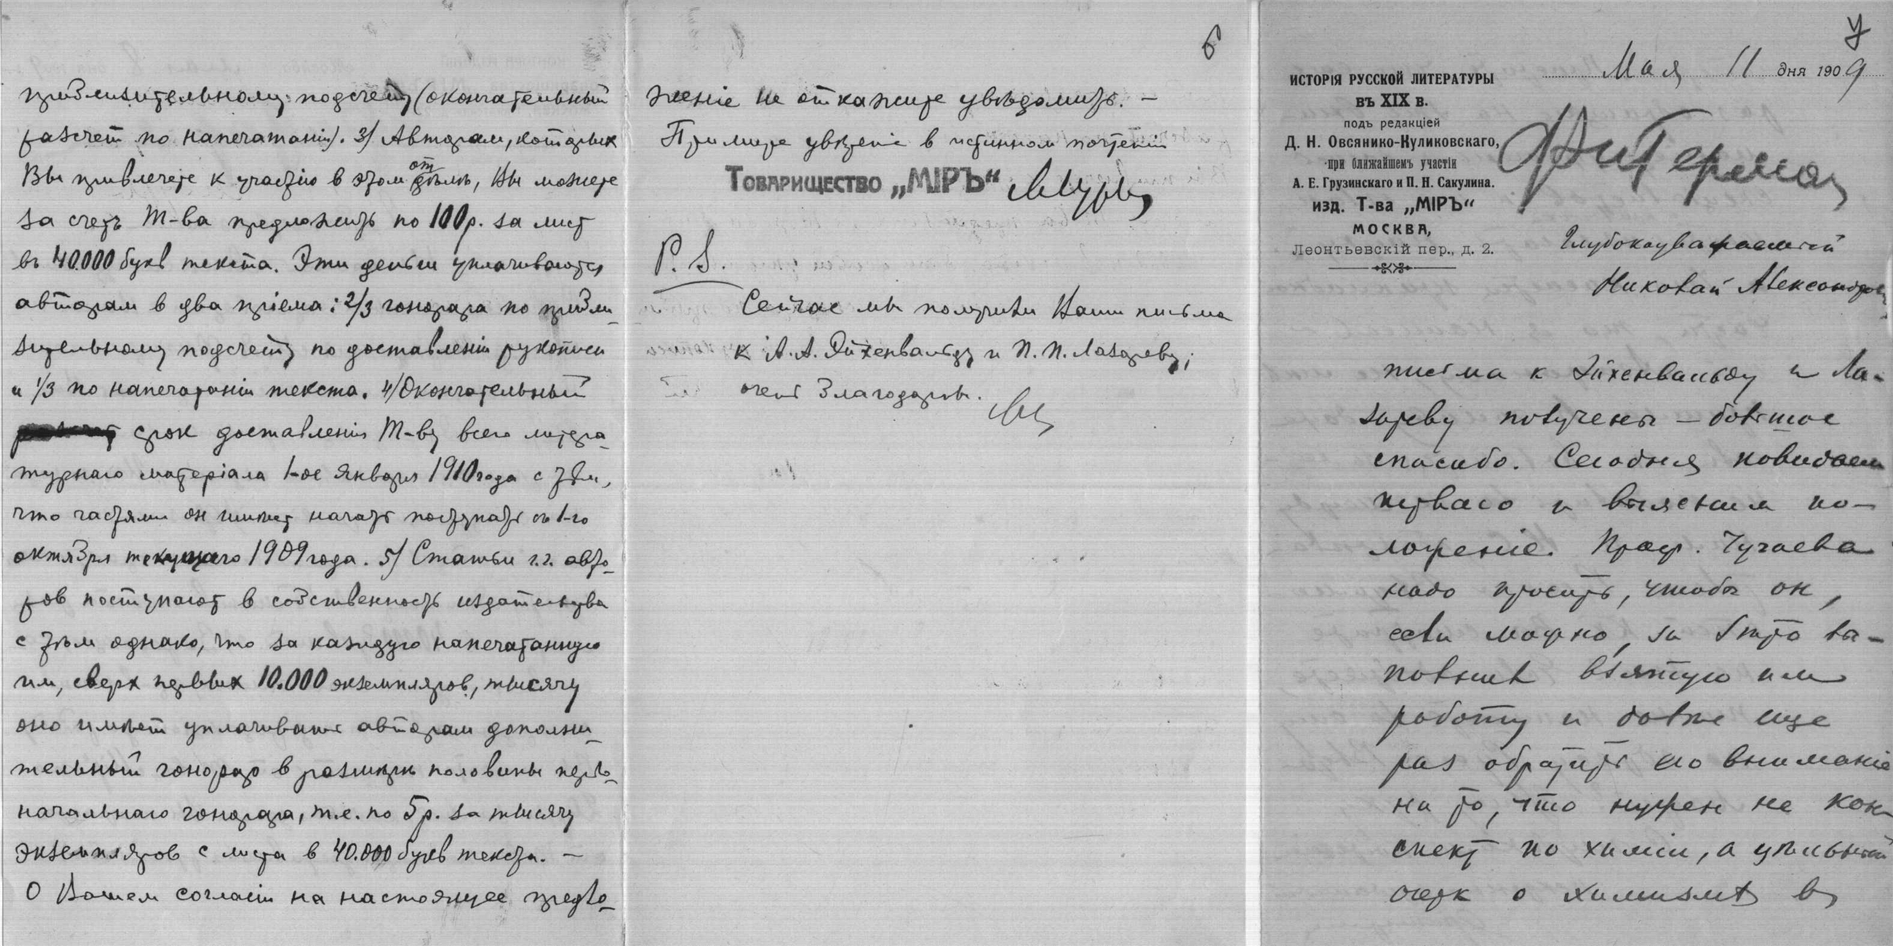 приблизительному подсчету (окончательный
разсчет по напечатанiи). 3) Авторам, которых
Вы привлечете к участiю в этом отдѣлѣ, Вы можете
за счет Т-ва предложить по 100 р. за лист
въ 40.000 букв текста. Эти деньги уплачиваются
авторам в два прiема: 2/3 гонорара по прибли-
зительному подсчету по доставленiи рукописи
и 1/3 по напечатанiи текста. 4) Окончательный
срок доставленiя Т-ву всего литера-
турнаго матерiала 1-ое Января 1910 года с тѣм,
что частями он имѣет начать поступать съ 1-го
октября текущаго 1909 года. 5) Статьи г.г. авто-
ров поступают в собственность издательства
с тѣм однако, что за каждую напечатанную
им, сверх первых 10.000 экземпляров, тысячу
оно имѣет уплачивать авторам дополни-
тельный гонорар в размѣрѣ половины перво-
начальнаго гонорара, т.е. по 5 р. за тысячу
экземпляров с листа в 40.000 букв текста. —
О Вашем согласiи на настоящее предло-
6
женiе не откажите увѣдомить. —
Примите увѣренiе в истинном почтенiи
Товарищество „МIРЪ“
P. S.
Сейчас мы получили Ваши письма
к А. А. Эйхенвальду и П. П. Лазареву;
очень благодарны.
7
Мая 11 дня 1909
ИСТОРIЯ РУССКОЙ ЛИТЕРАТУРЫ
въ XIX в.
подъ редакцiей
Д. Н. Овсянико-Куликовскаго,
при ближайшемъ участiи
А. Е. Грузинскаго и П. Н. Сакулина.
изд. Т-ва „МIРЪ“
МОСКВА,
Леонтьевскiй пер., д. 2.
Глубокоуважаемый
Николай Александрович
письма к Эйхенвальду и Ла-
зареву получены — большое
спасибо. Сегодня повидаем
перваго и выясним по-
ложенiе. Проф. Чугаева
надо просить, чтобы он,
если можно, за лѣто вы-
полнил взятую им
работу и далѣе еще
раз обратить его вниманiе
на то, что нужен не кон-
спект по химiи, а цѣльный
очерк о химизмѣ в